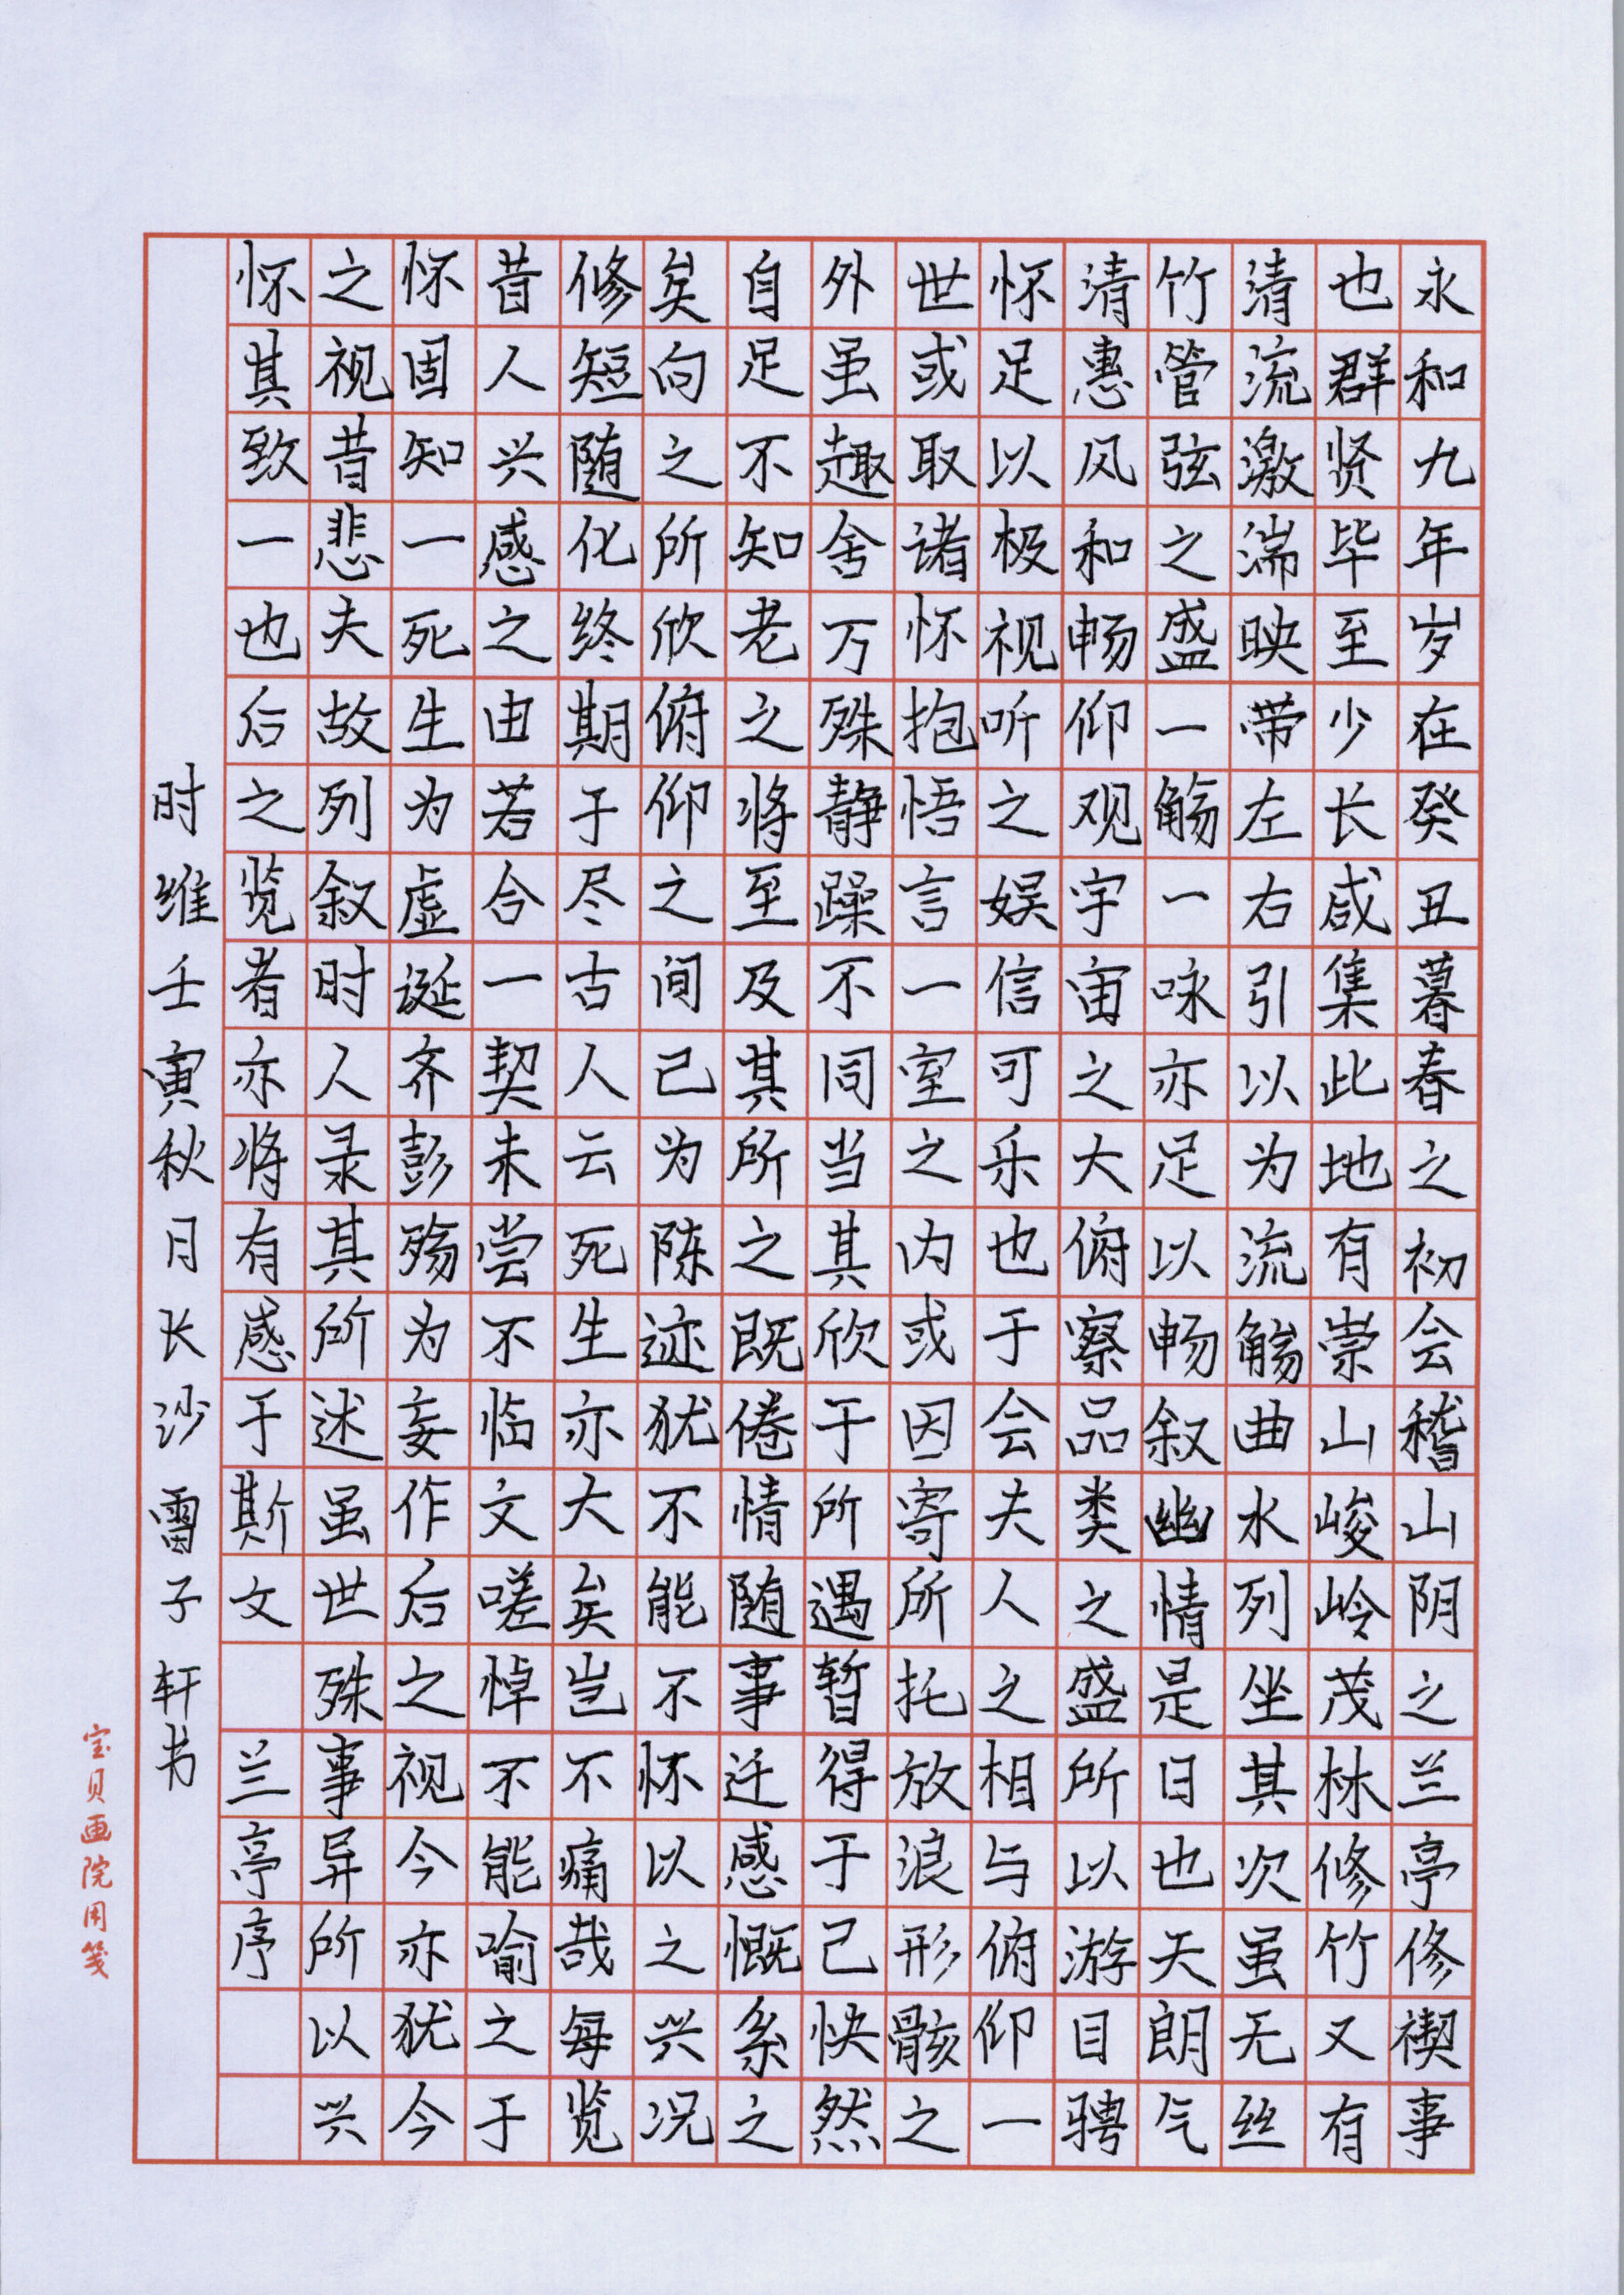 永和九年岁在癸丑暮春之初会稽山阴之兰亭修禊事
也群贤毕至少长咸集此地有崇山峻岭茂林修竹又有
清流激湍映带左右引以为流觞曲水列坐其次虽无丝
竹管弦之盛一觞一咏亦足以畅叙幽情是日也天朗气
清惠风和畅仰观宇宙之大俯察品类之盛所以游目骋
怀足以极视听之娱信可乐也于会夫人之相与俯仰一
世或取诸怀抱悟言一室之内或因寄所托放浪形骸之
外虽趣舍万殊静躁不同当其欣于所遇暂得于己快然
自足不知老之将至及其所之既倦情随事迁感慨系之
矣向之所欣俯仰之间已为陈迹犹不能不怀以之兴况
修短随化终期于尽古人云死生亦大矣岂不痛哉每览
昔人兴感之由若合一契未尝不临文嗟悼不能喻之于
怀固知一死生为虚诞齐彭殇为妄作后之视今亦犹今
之视昔悲夫故列叙时人录其所述虽世殊事异所以兴
怀其致一也后之览者亦将有感于斯文 兰亭序
时维壬寅秋月长沙雷子轩书
宝贝画院用笺